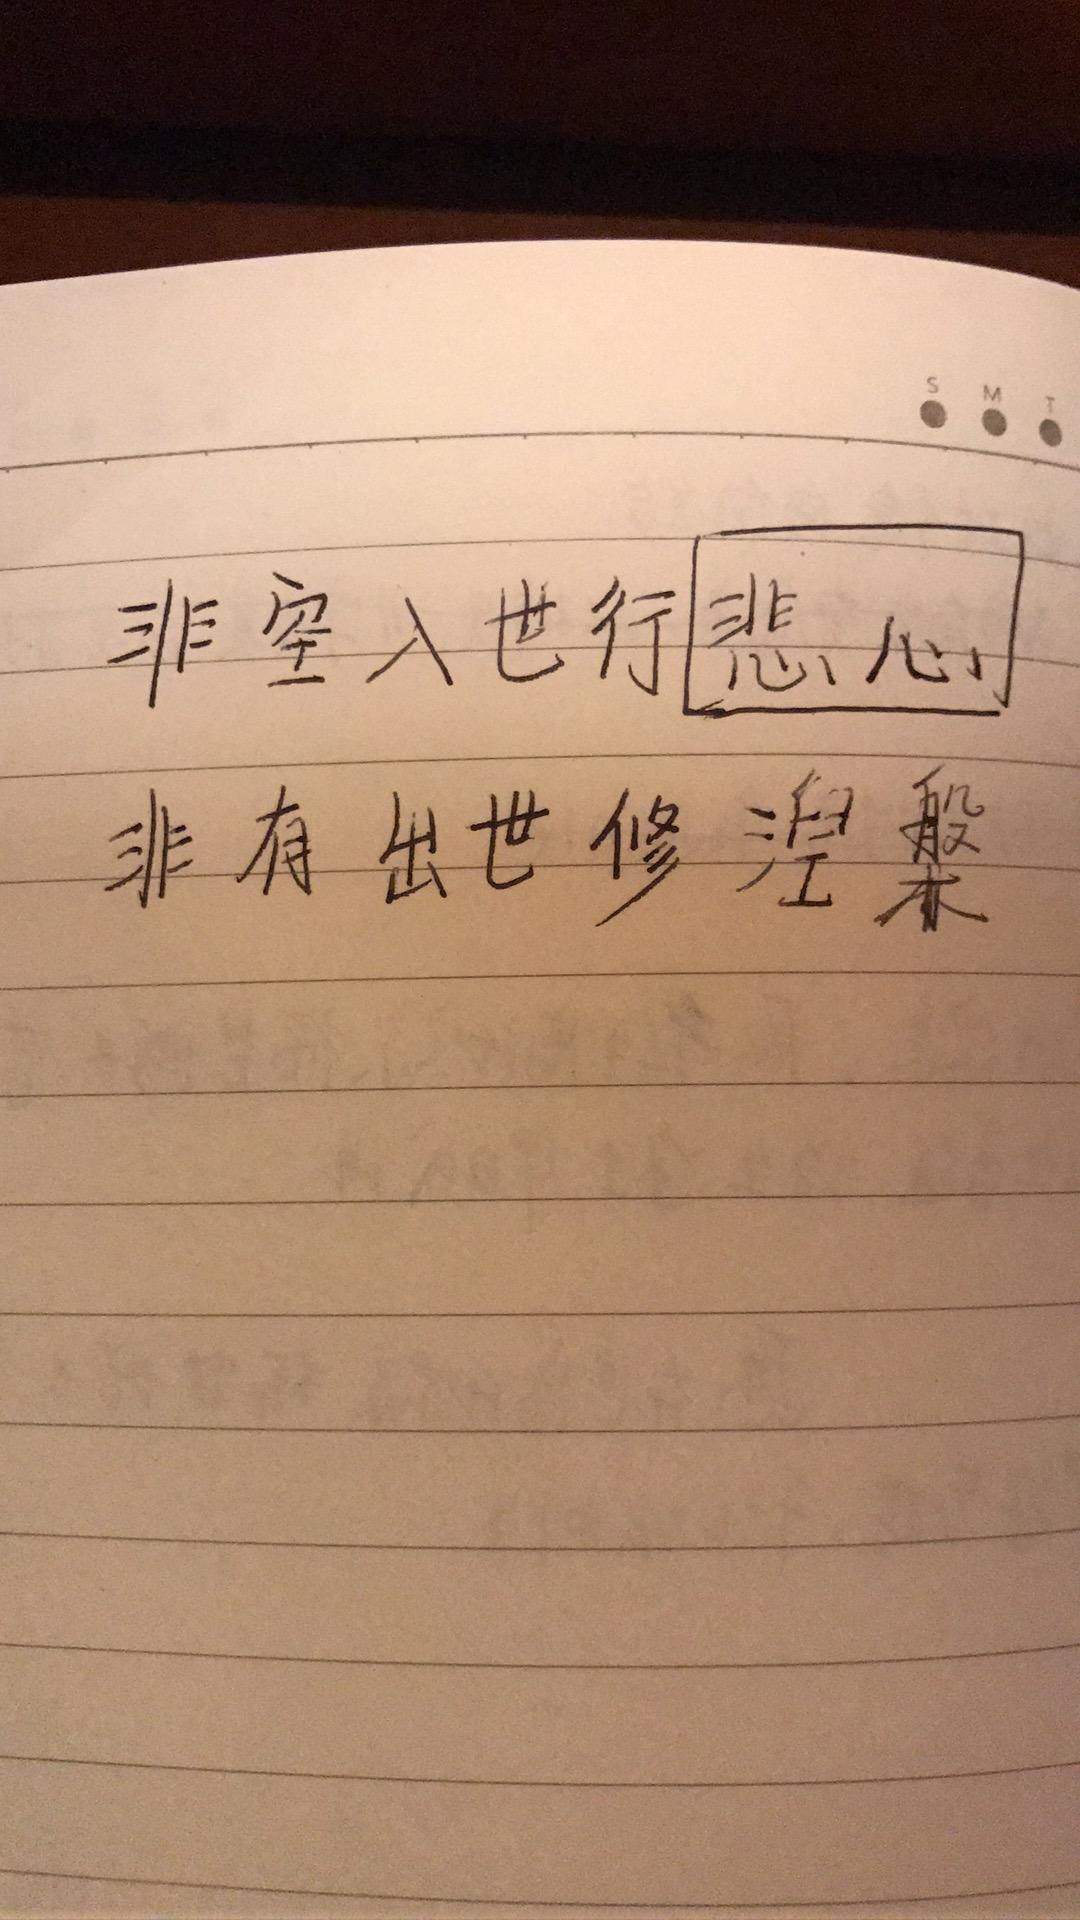 S M T
非空入世行悲心
非有出世修涅槃